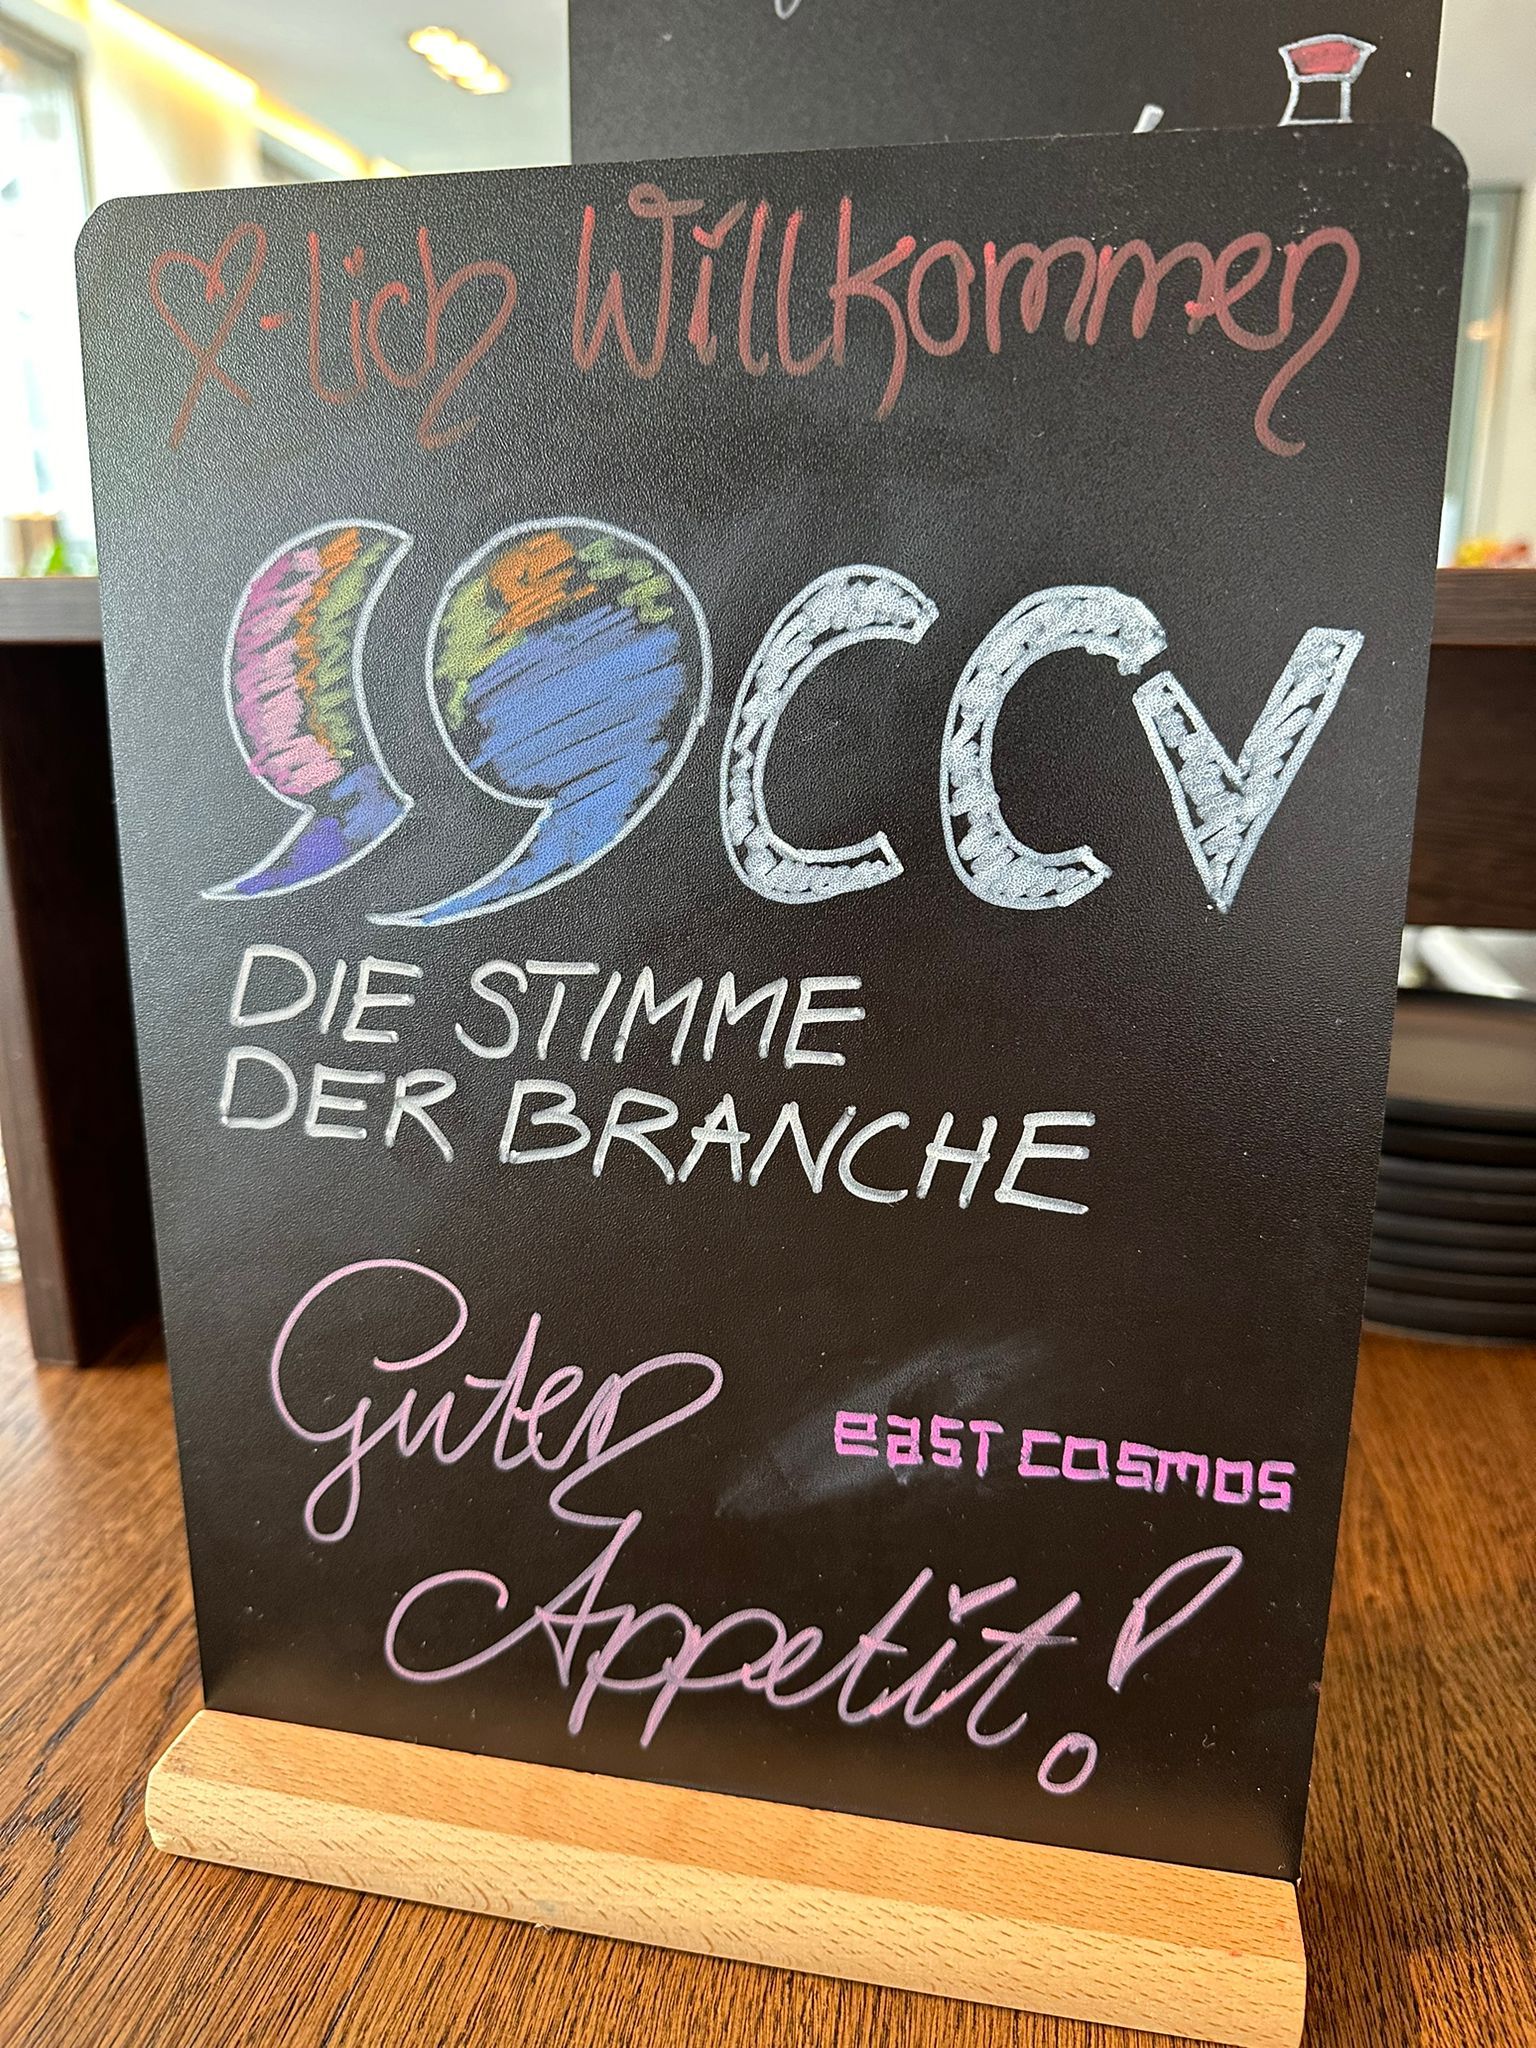 ♡-lich Willkommen
CCV
DIE STIMME
DER BRANCHE
Guten
east cosmos
Appetit!